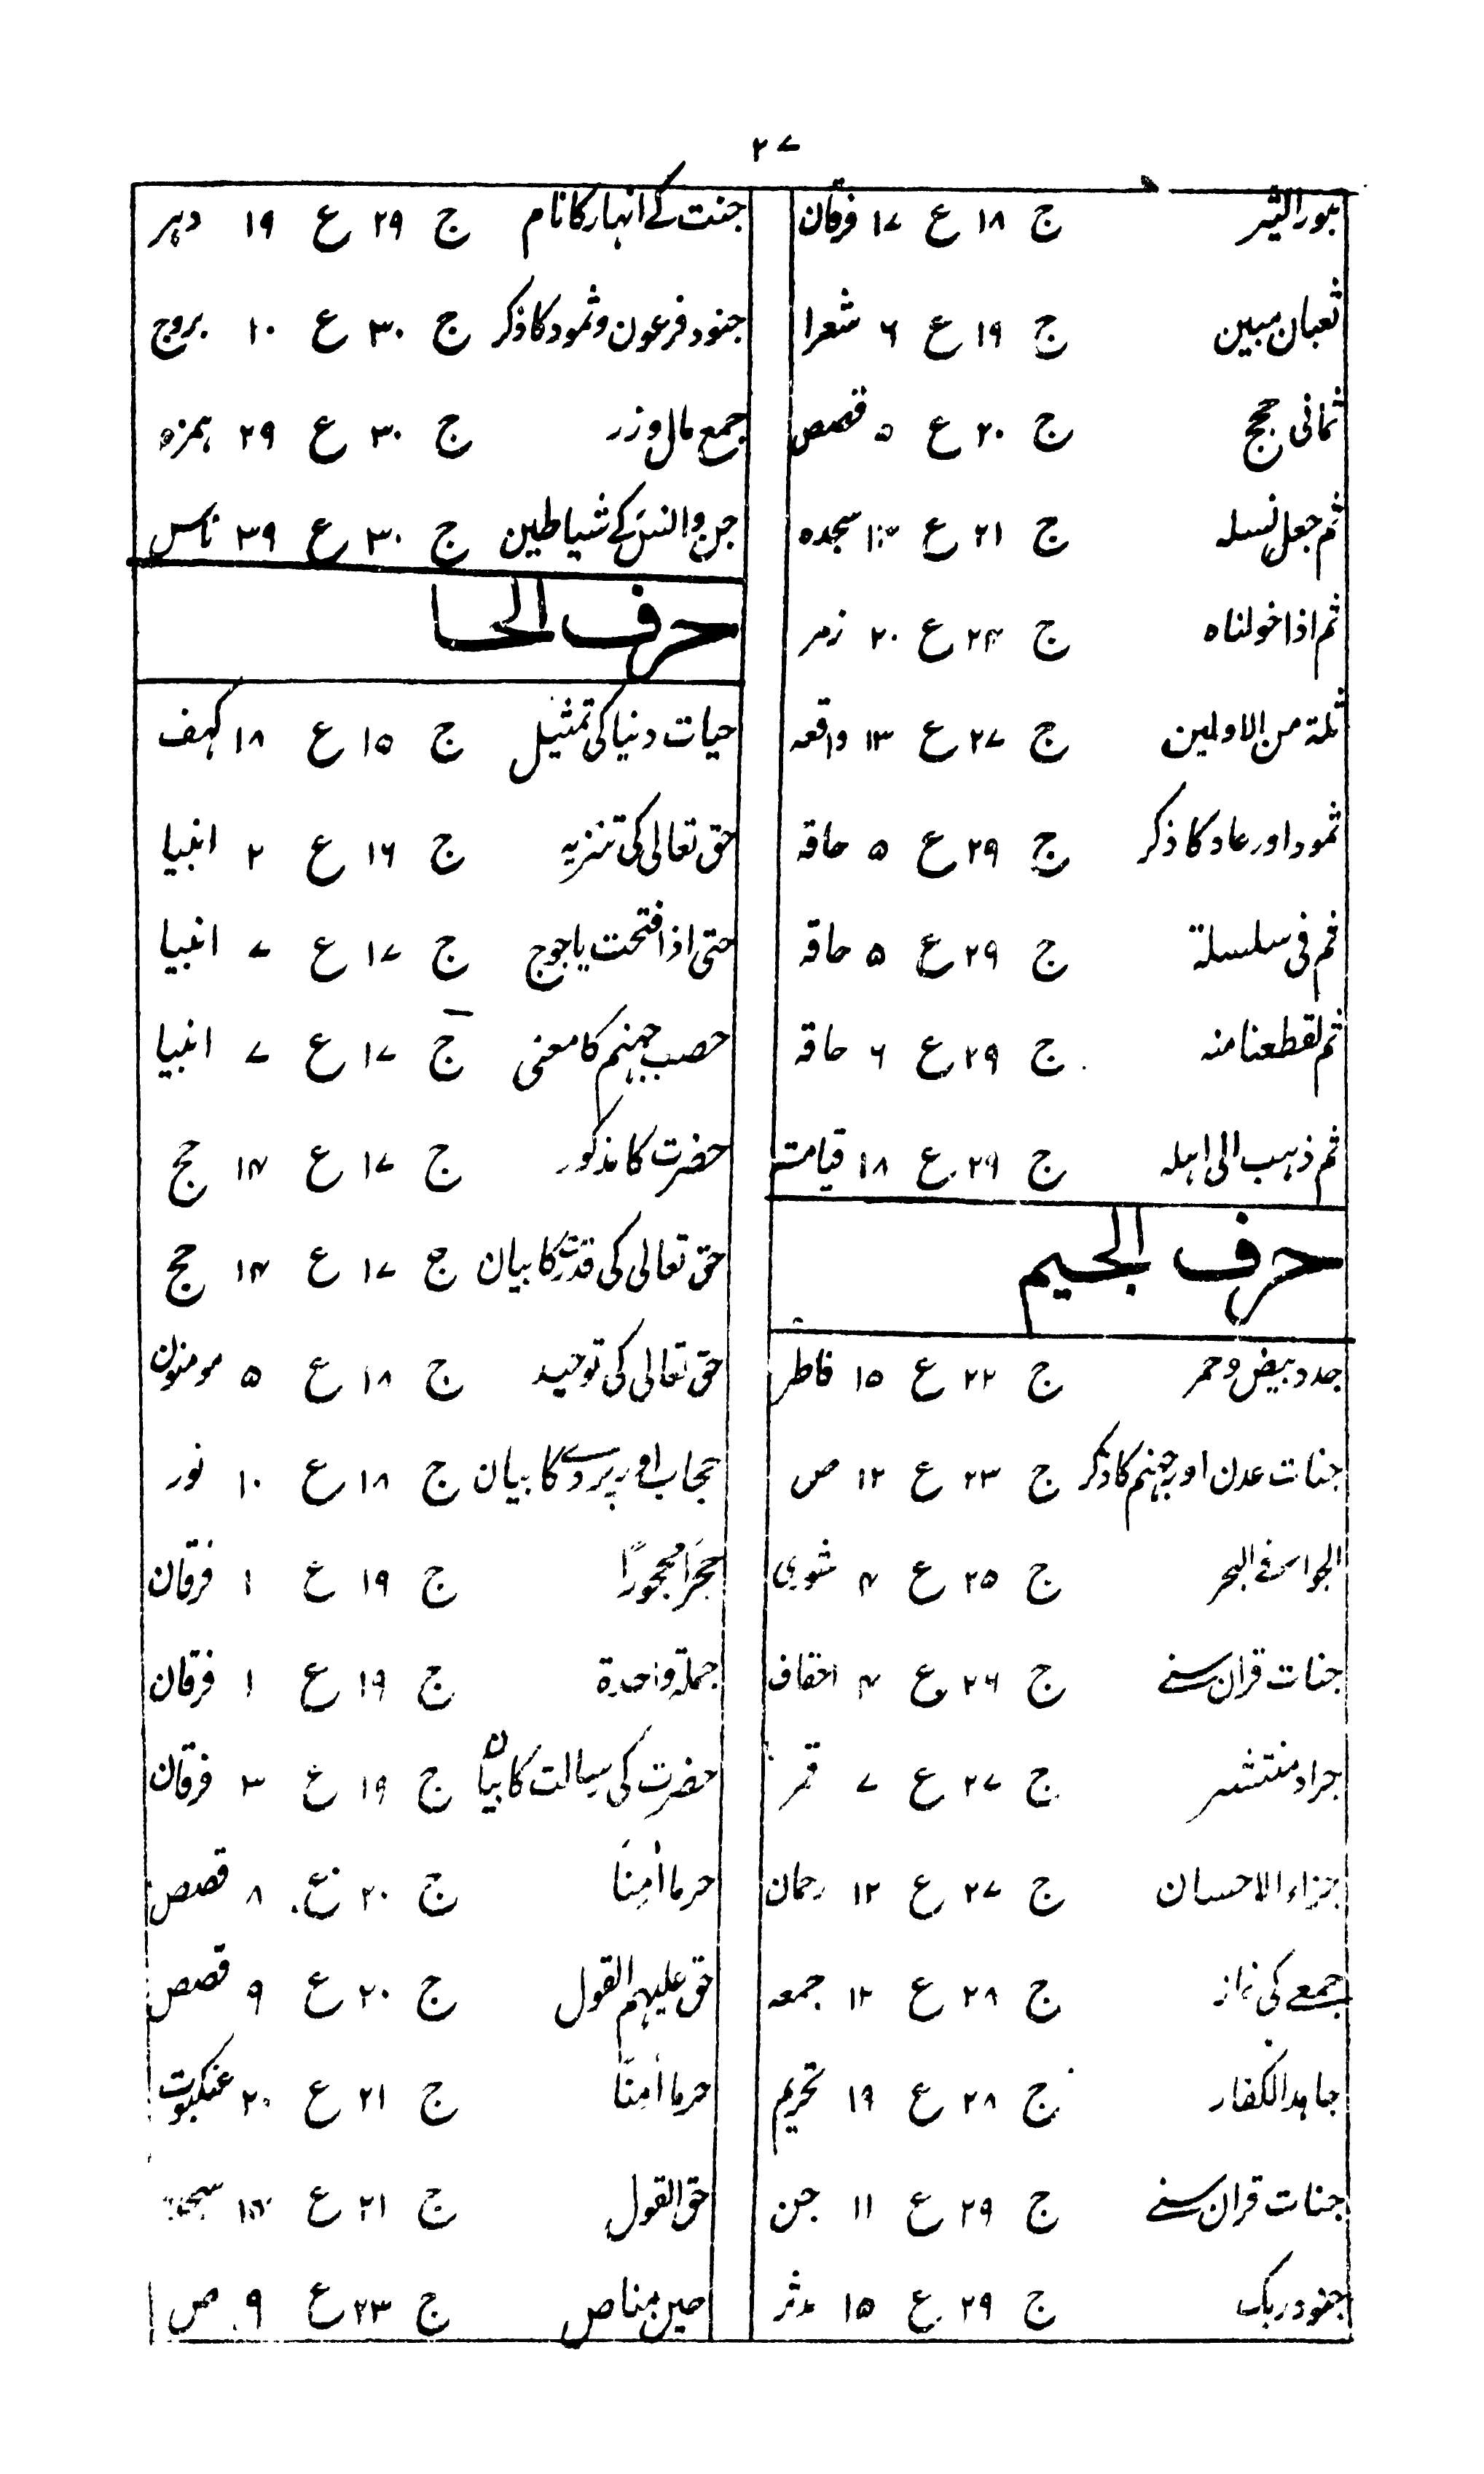 ۲۷
ثبورا کثیر ج ۱۸ ع ۱۷ فرقان
ثعبان مبین ج ۱۹ ع ۶ شعرا
ثمانی حجج ج ۲۰ ع ۵ قصص
ثم جعل نسلہ ج ۲۱ ع سجدہ
ثم اذا خولناہ ج ۲۴ ع ۲۰ زمر
ثلۃ من الاولین ج ۲۷ ع ۱۳ واقعہ
ثمود اور عاد کا ذکر ج ۲۹ ع ۵ حاقہ
ثم فی سلسلۃ ج ۲۹ ع ۵ حاقہ
ثم لقطعنا منہ ج ۲۹ ع ۶ حاقہ
ثم ذہب الی اہلہ ج ۲۹ ع ۱۸ قیامت
حرف الجیم
جدد بیض و حمر ج ۲۲ ع ۱۵ فاطر
جنات عدن اور جہنم کا ذکر ج ۲۳ ع ۱۲ ص
الجوار فی البحر ج ۲۵ ع ۴ شوری
جنات قران سنے ج ۲۶ ع ۴ احقاف
جراد منتشر ج ۲۷ ع ۷ قمر
جزاء الاحسان ج ۲۷ ع ۱۲ رحمان
جمعے کی نماز ج ۲۸ ع ۱۲ جمعہ
جاہد الکفار ج ۲۸ ع ۱۹ تحریم
جنات قران سنے ج ۲۹ ع ۱۱ جن
جنود ربک ج ۲۹ ع ۱۵ مدثر
جنت کے انہار کا نام ج ۲۹ ع ۱۹ دہر
جنود فرعون و ثمود کا ذکر ج ۳۰ ع ۱۰ بروج
جمع مال و زر ج ۳۰ ع ۲۹ ہمزہ
جن و انس کے شیاطین ج ۳۰ ع ۳۹ ناس
حرف الحا
حیات دنیا کی تمثیل ج ۱۵ ع ۱۸ کہف
حق تعالی کی تنزیہ ج ۱۶ ع ۲ انبیا
حتی اذا فتحت یاجوج ج ۱۷ ع ۷ انبیا
حصب جہنم کا معنی ج ۱۷ ع ۷ انبیا
حضرت کا مذکور ج ۱۷ ع ۱۴ حج
حق تعالی کی قدرت کا بیان ج ۱۷ ع ۱۴ حج
حق تعالی کی توحید ج ۱۸ ع ۵ مومنون
حجاب اور پردے کا بیان ج ۱۸ ع ۱۰ نور
حجرا محجورا ج ۱۹ ع ۱ فرقان
جملۃ واحدۃ ج ۱۹ ع ۱ فرقان
حضرت کی رسالت کا بیان ج ۱۹ ع ۳ فرقان
حرما اٰمنا ج ۲۰ ع ۸ قصص
حق علیہم القول ج ۲۰ ع ۹ قصص
حرما اٰمنا ج ۲۱ ع ۲۰ عنکبوت
حق القول ج ۲۱ ع سجدہ
حین مناص ج ۲۳ ع ۹ ص